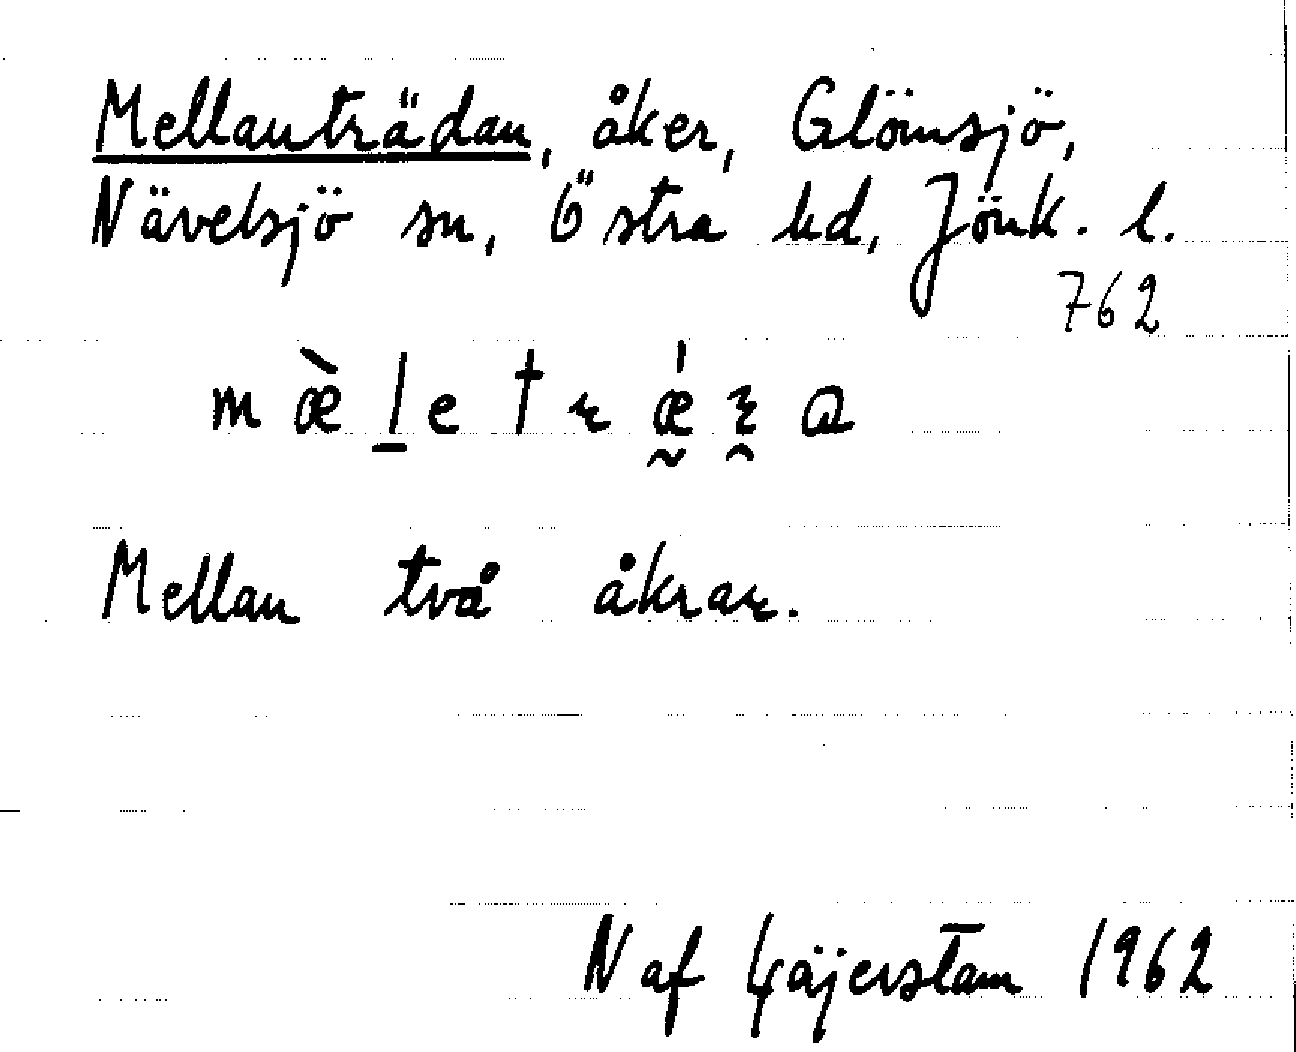 Mellanträdan, åker, Glömsjö,
Nävelsjö sn, Östra hd, Jönk. l.
762
Mellan två åkrar.
N af Gäjerstam 1962